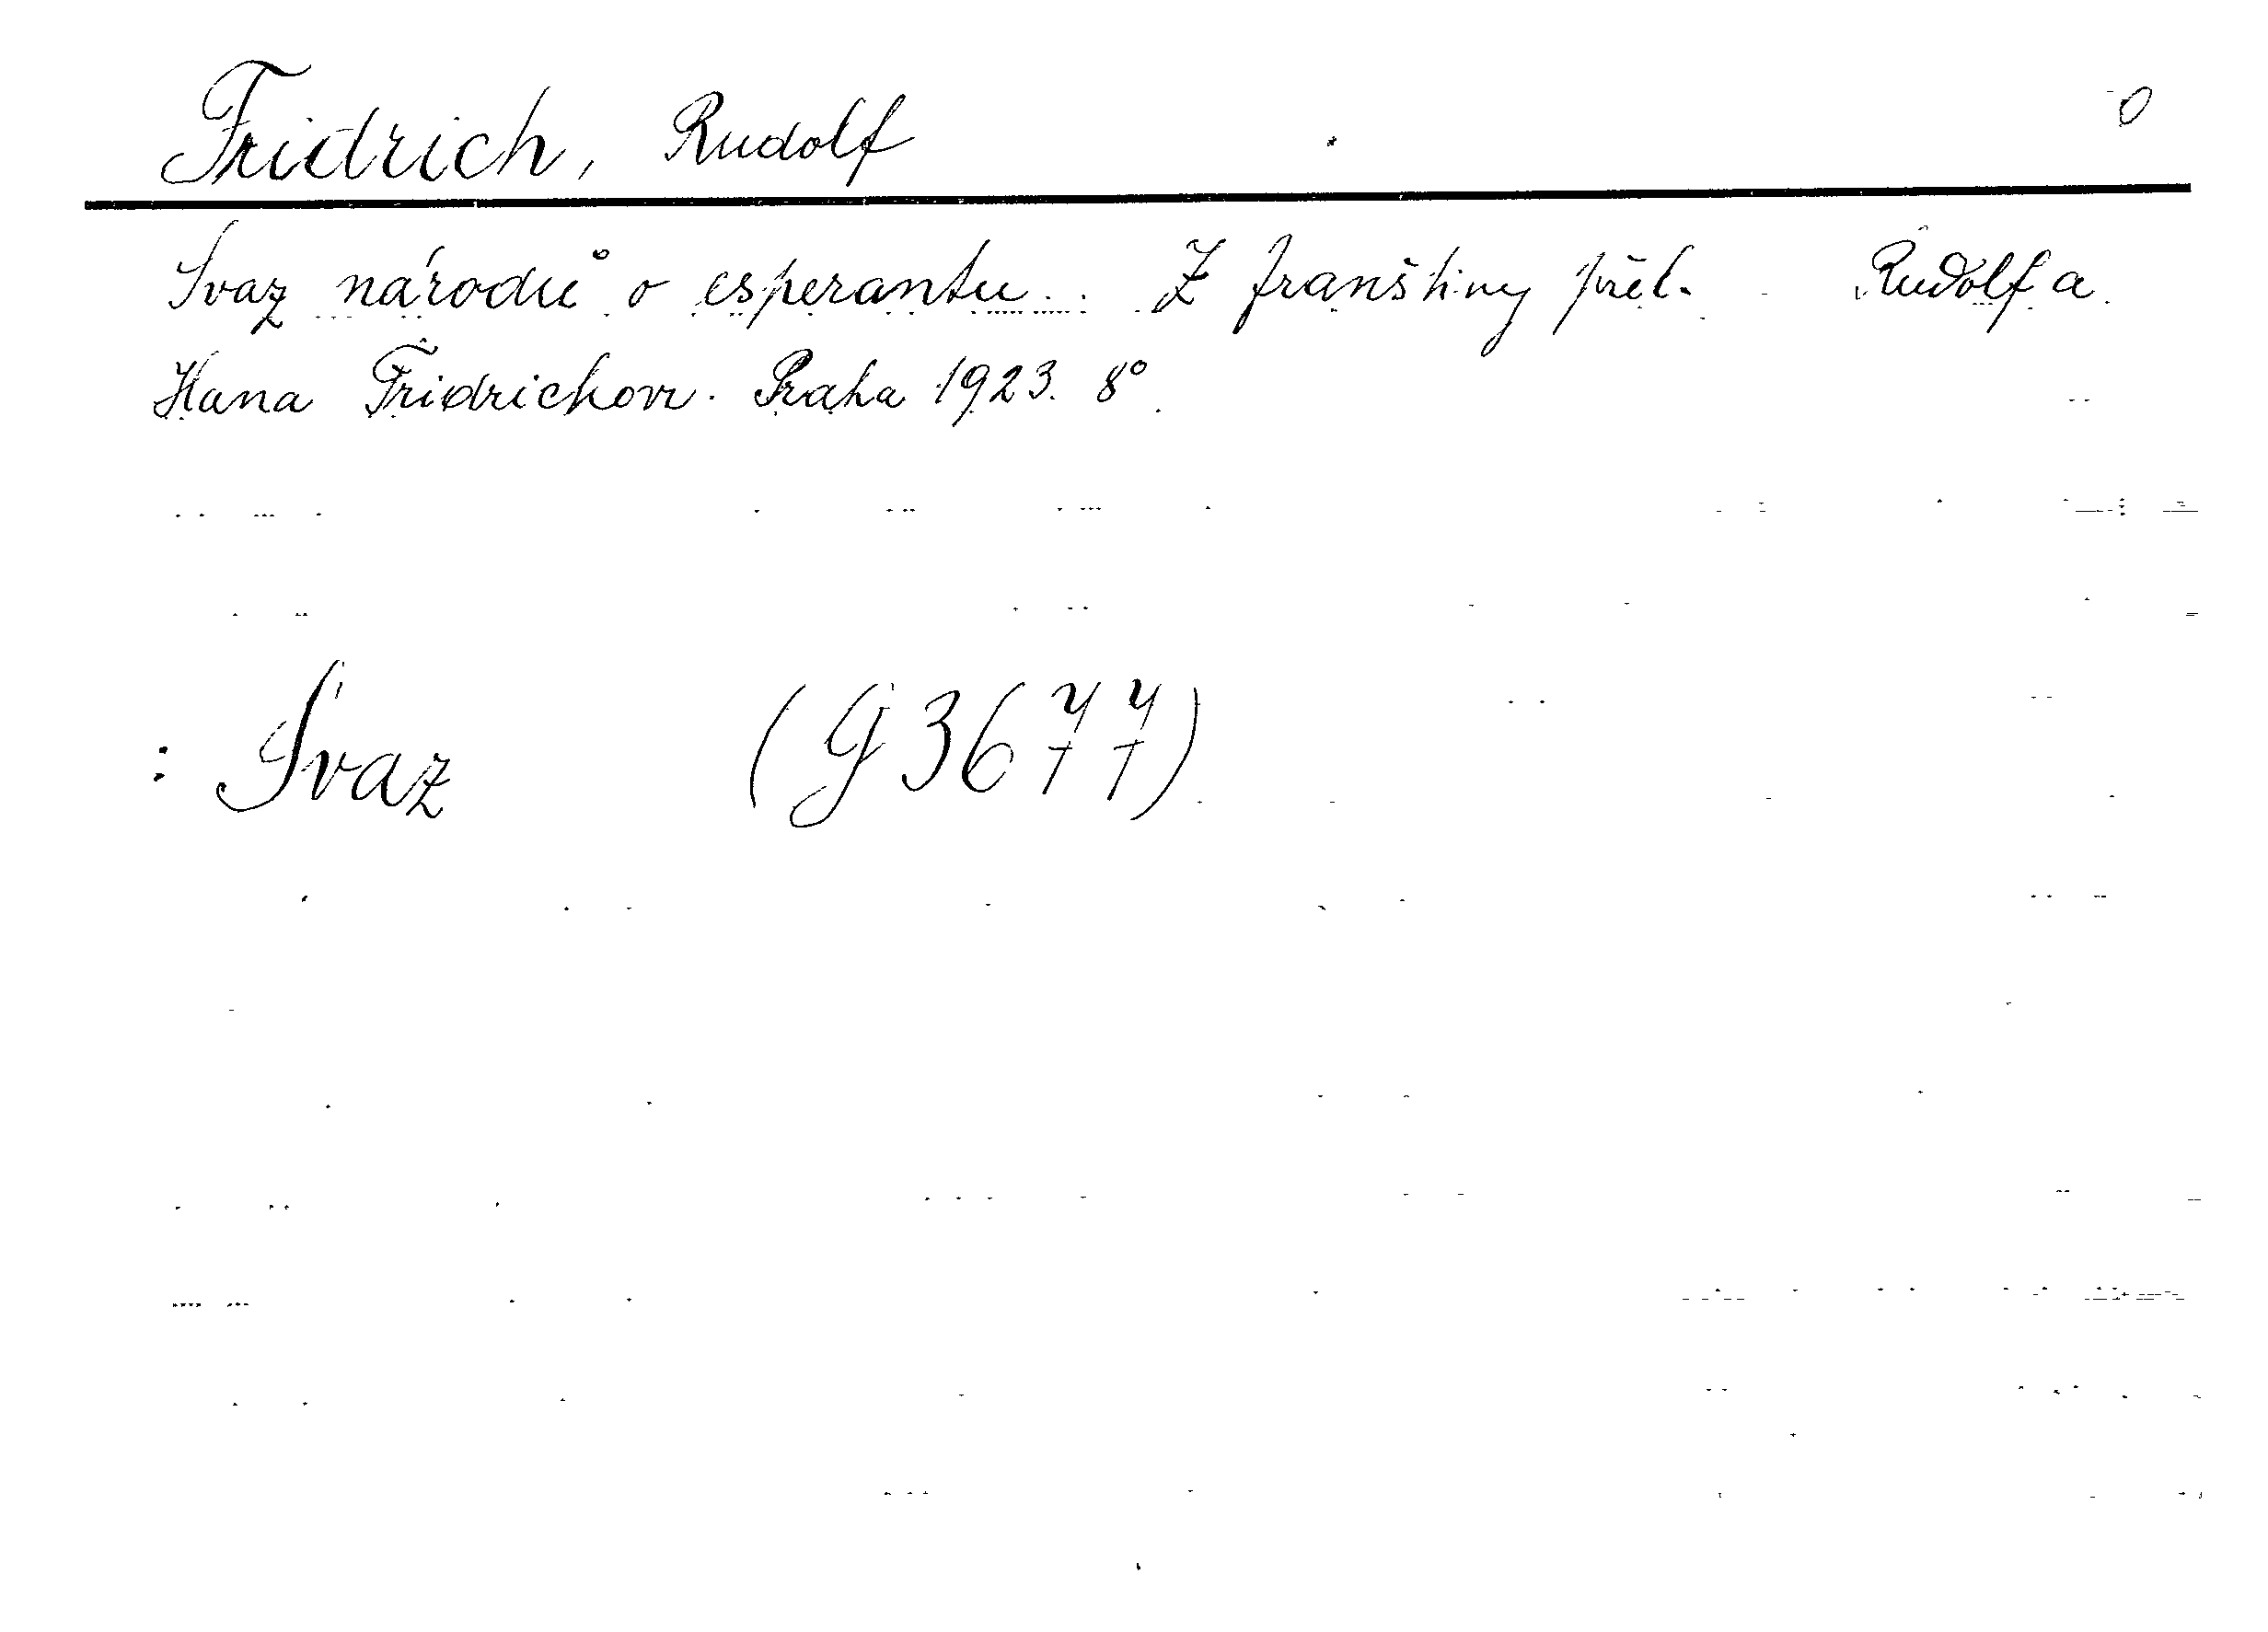 Fridrich, Rudolf 0
Svaz národů o esperantu.. Z franštiny přel. Rudolf a
Hana Fridrichovi. Praha 1923. 8°.
: Svaz (G 3677)